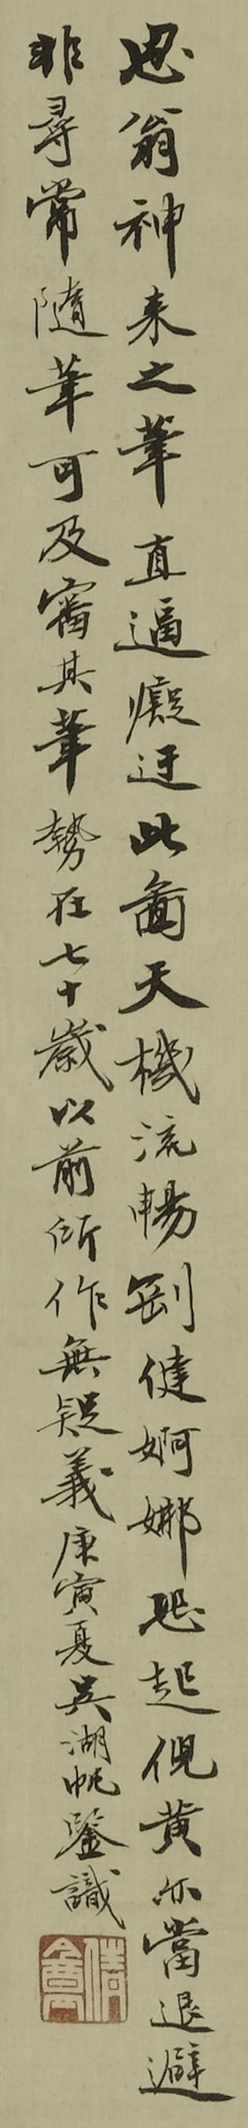 思翁神来之筆直逼癡迂此啚天機流暢剛健婀娜恐起倪黄亦當退避
非尋常隨筆可及審其筆勢在七十歲以前所作無疑義庚寅夏吴湖帆鑒識
倩盦